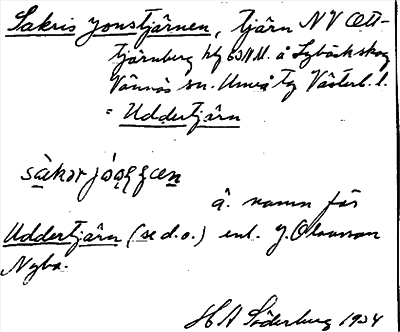 Sakris Jonstjärnen, tjärn NV Ott-
tjärnberg å Sybäck skog
Vännäs sn. Umeå tg Västerb. l.
= Uddertjärn
å. namn för
Uddertjärn (se d.o.) enl. J. Olovsson
Nyby.
H A Söderberg 1934